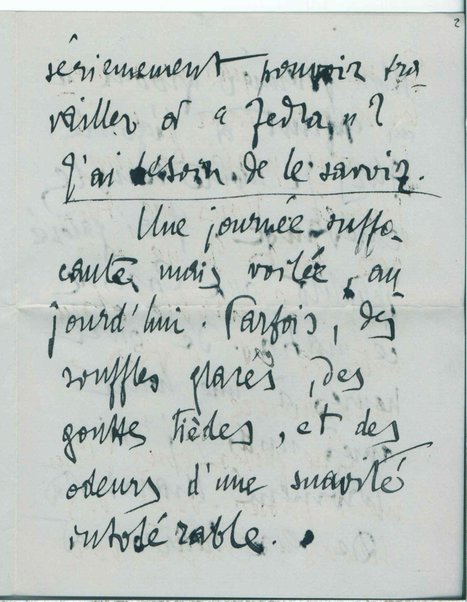 2
sérieusement pouvoir tra
vailler à
J'ai besoin de le savoir.
Une journée suffo
cante, mais voilée, au
jourd'hui. Parfois, des
souffles glacés, des
gouttes tièdes, et des
odeurs d'une suavité
intolérable.